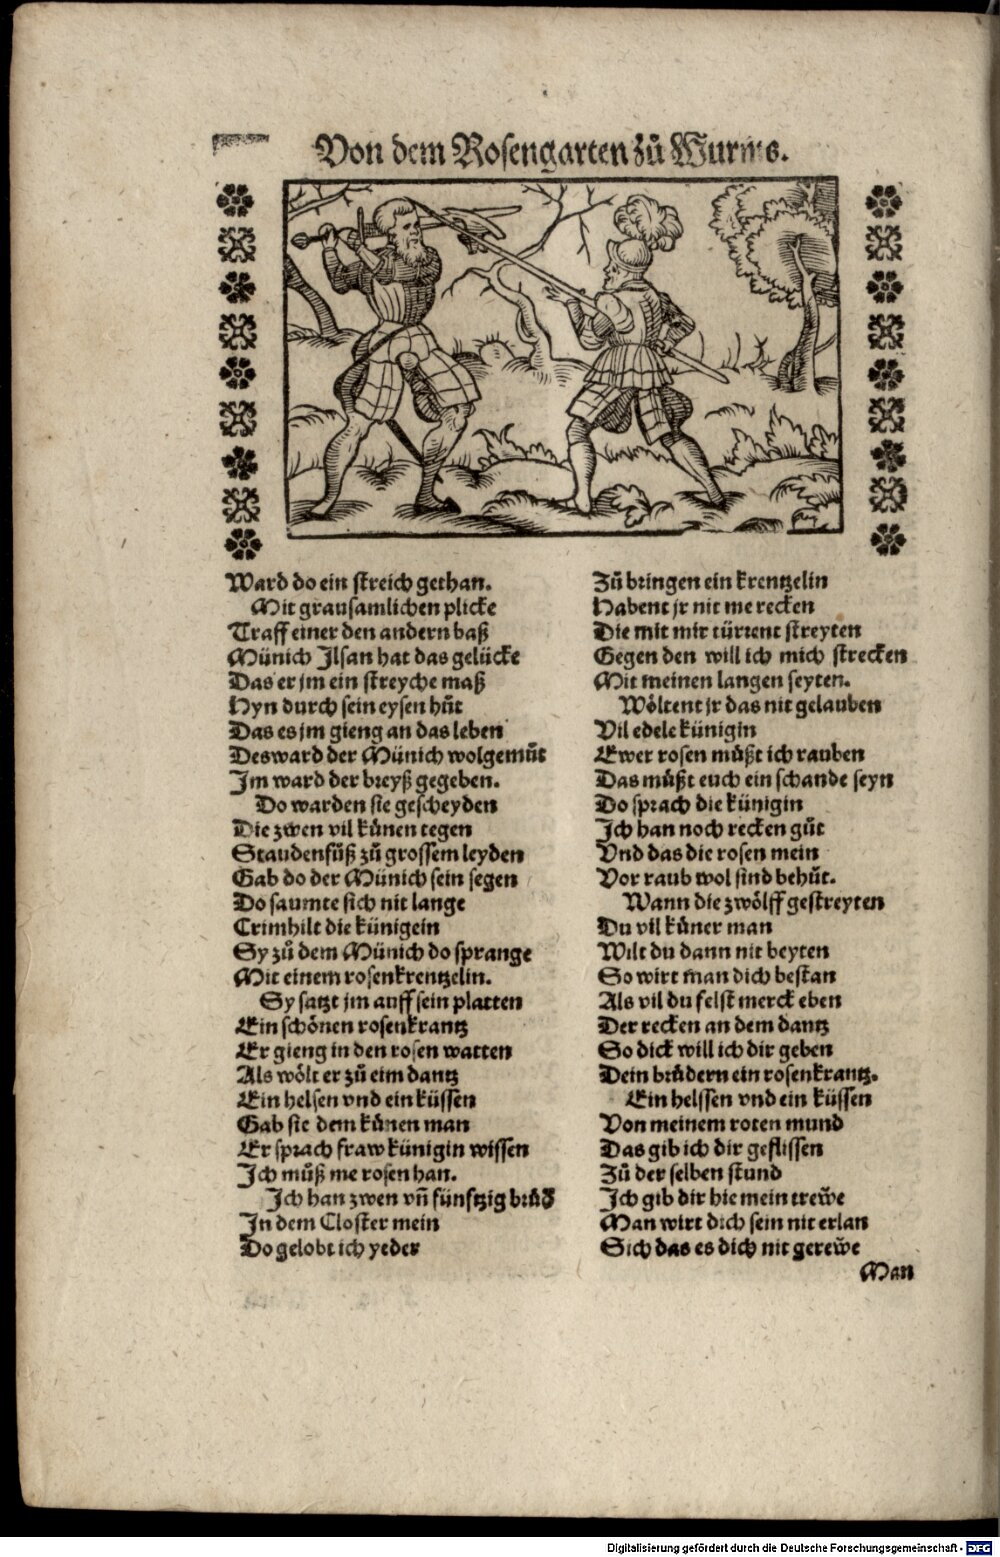 Von dem Rosengarten zů Wurms.
Ward do ein streich gethan.
Mit grausamlichen plicke
Traff einer den andern baß
Münich Ilsan hat das gelücke
Das er jm ein streyche maß
Hyn durch sein eysen hůt
Das es jm gieng an das leben
Desward der Münich wolgemůt
Im ward der breyß gegeben.
Do warden sie gescheyden
Die zwen vil kůnen tegen
Staudenfůß zů grossem leyden
Gab do der Münich sein segen
Do saumte sich nit lange
Crimhilt die künigein
Sy zů dem Münich do sprange
Mit einem rosenkrentzelin.
Sy satzt jm auff sein platten
Ein schönen rosenkrantz
Er gieng in den rosen watten
Als wölt er zů eim dantz
Ein helsen vnd ein küssen
Gab sie dem kůnen man
Er sprach fraw künigin wissen
Ich můß me rosen han.
Ich han zwen vñ fünftzig brůd
In dem Closter mein
Do gelobt ich yeder
Zů bringen ein krentzelin
Habent jr nit me recken
Die mit mir türrent streyten
Gegen den will ich mich strecken
Mit meinen langen seyten.
Wöltent jr das nit gelauben
Vil edele künigin
Ewer rosen můßt ich rauben
Das můßt euch ein schande seyn
Do sprach die künigin
Ich han noch recken gůt
Vnd das die rosen mein
Vor raub wol sind behůt.
Wann die zwölff gestreyten
Du vil kůner man
Wilt du dann nit beyten
So wirt man dich bestan
Als vil du felst merck eben
Der recken an dem dantz
So dick will ich dir geben
Dein brůdern ein rosenkrantz.
Ein helssen vnd ein küssen
Von meinem roten mund
Das gib ich dir geflissen
Zů der selben stund
Ich gib dir hie mein trewe
Man wirt dich sein nit erlan
Sich das es dich nit gerewe
Man
Digitalisierung gefördert durch die Deutsche Forschungsgemeinschaft - DFG